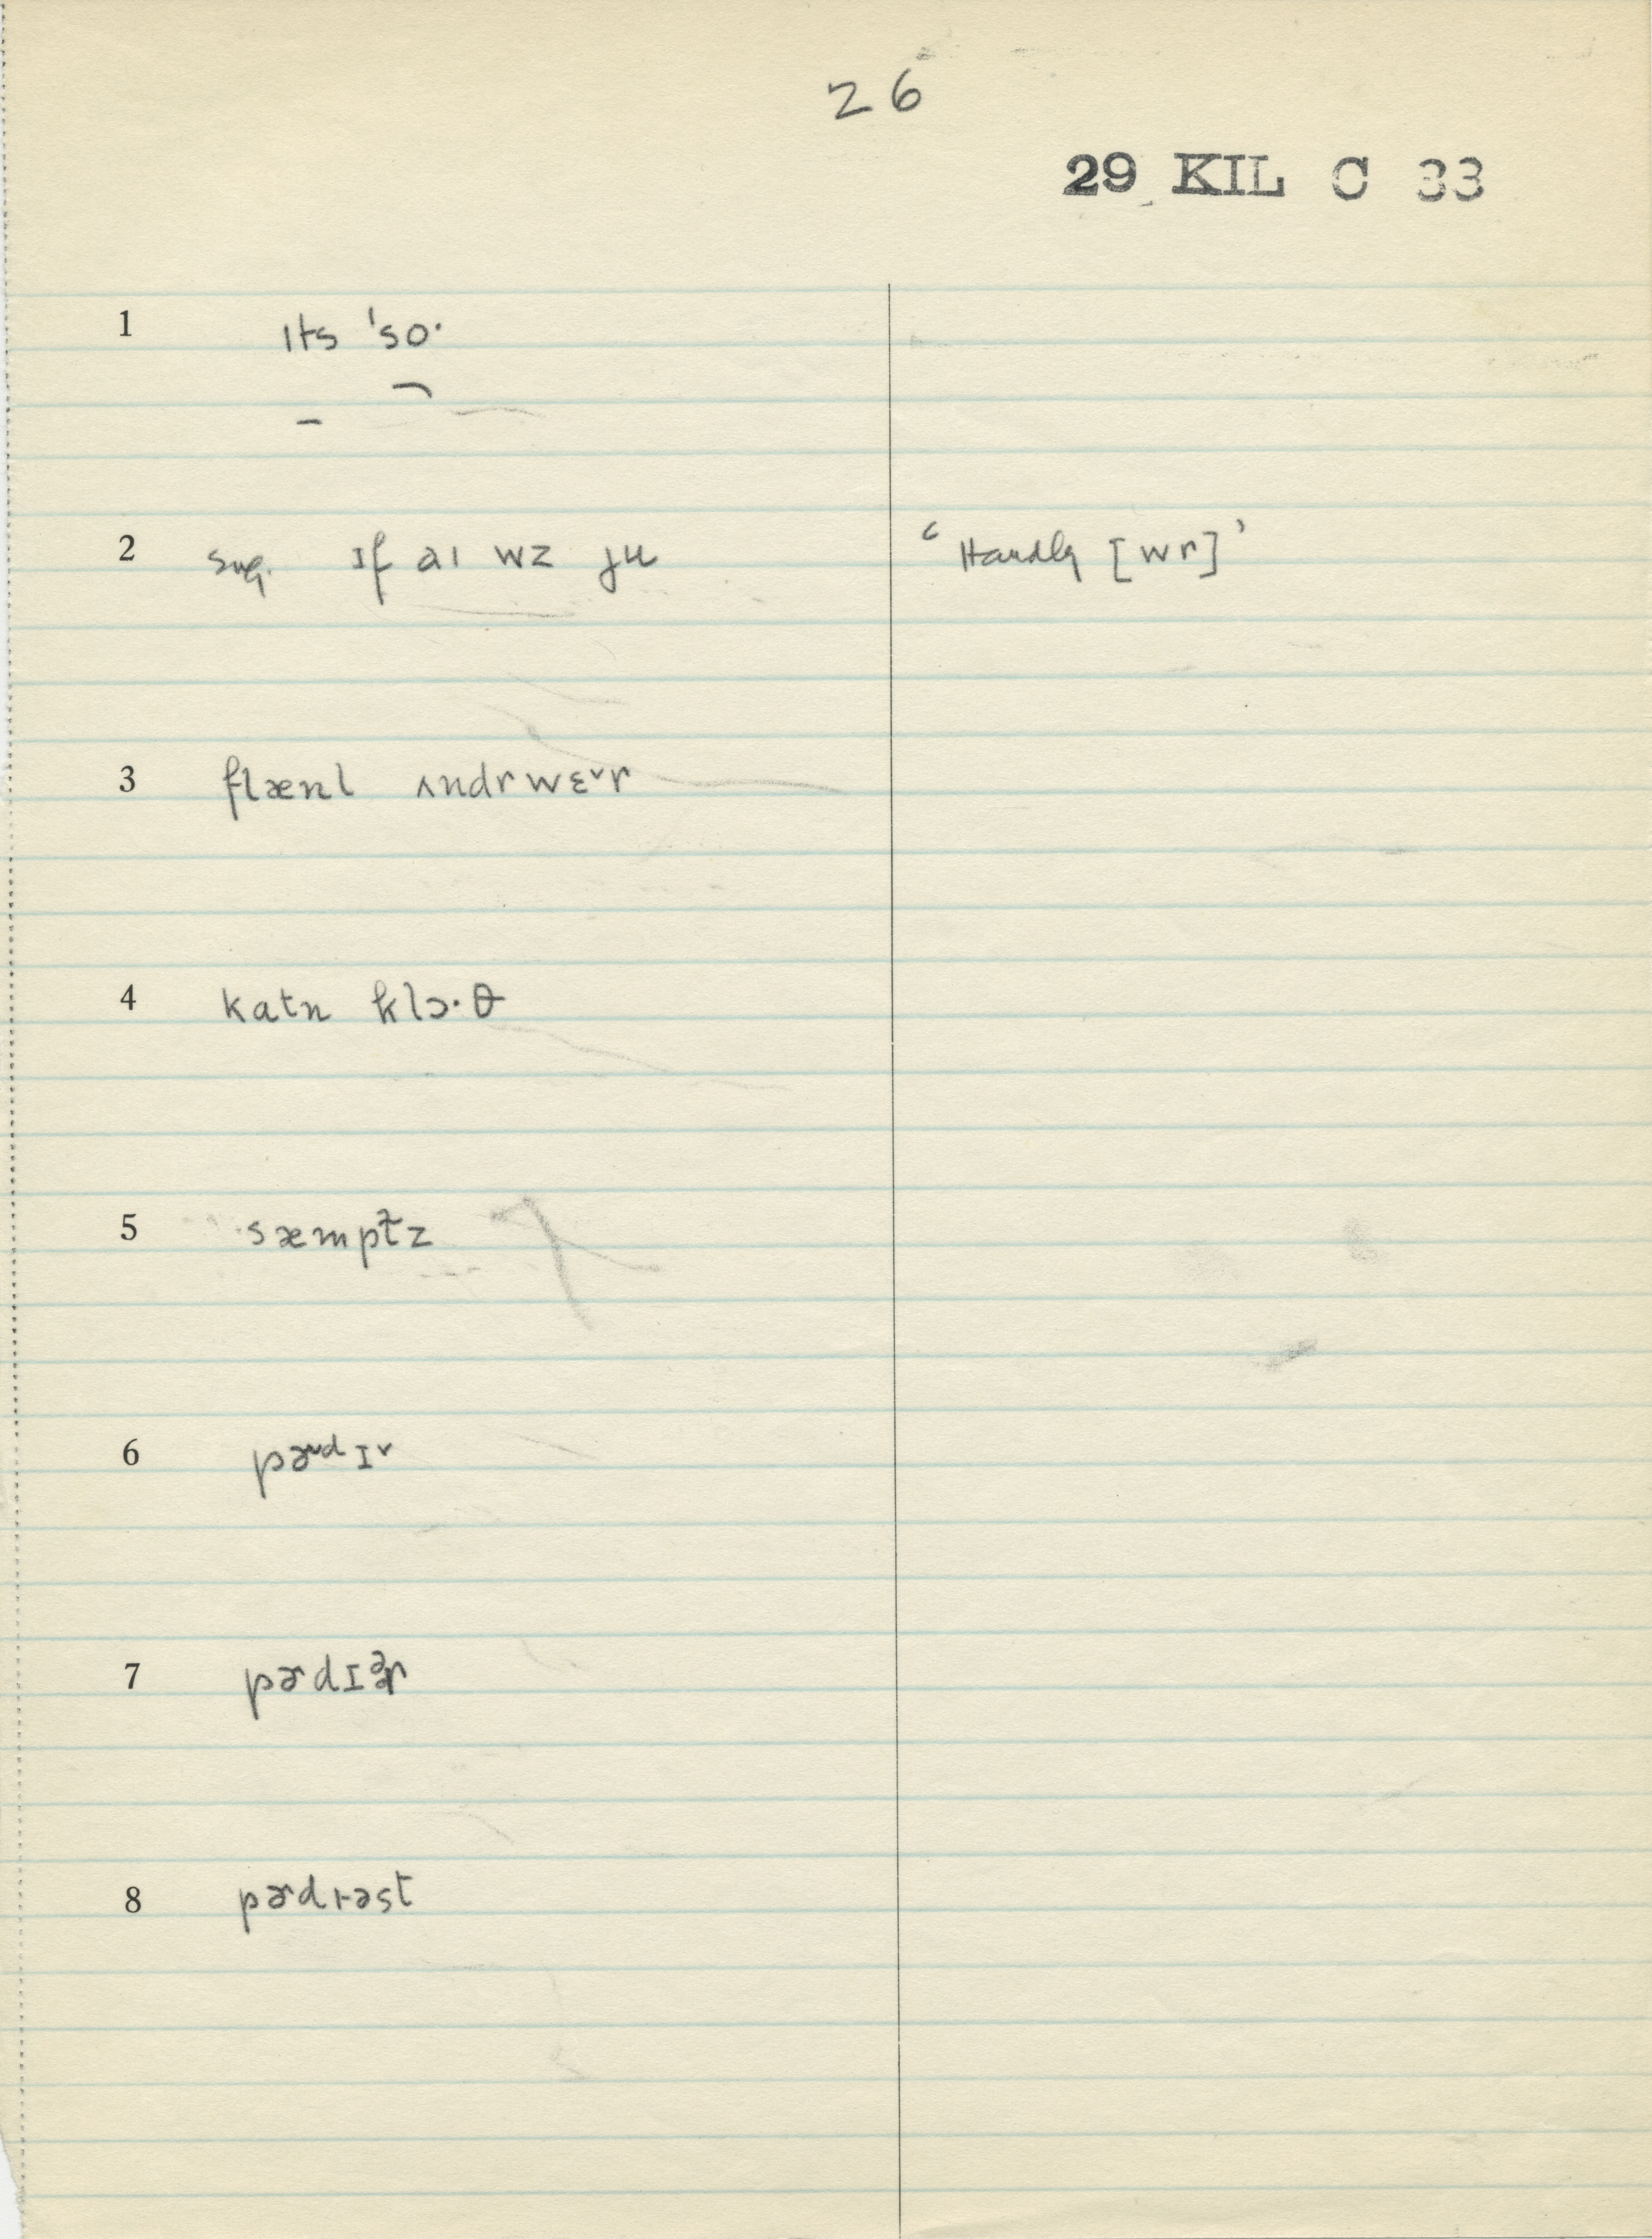 26
29 KIL C 33
1 ɪts 'so·
2 sug. ɪf aɪ wz ju ‘Hardly [wr]’
3 flænl ʌndrwɛ˅r
4 katn klɔ·θ
5 sæmptz
6 pɚdɪ˅
7 pɚdɪər
8 pɚdɪəst